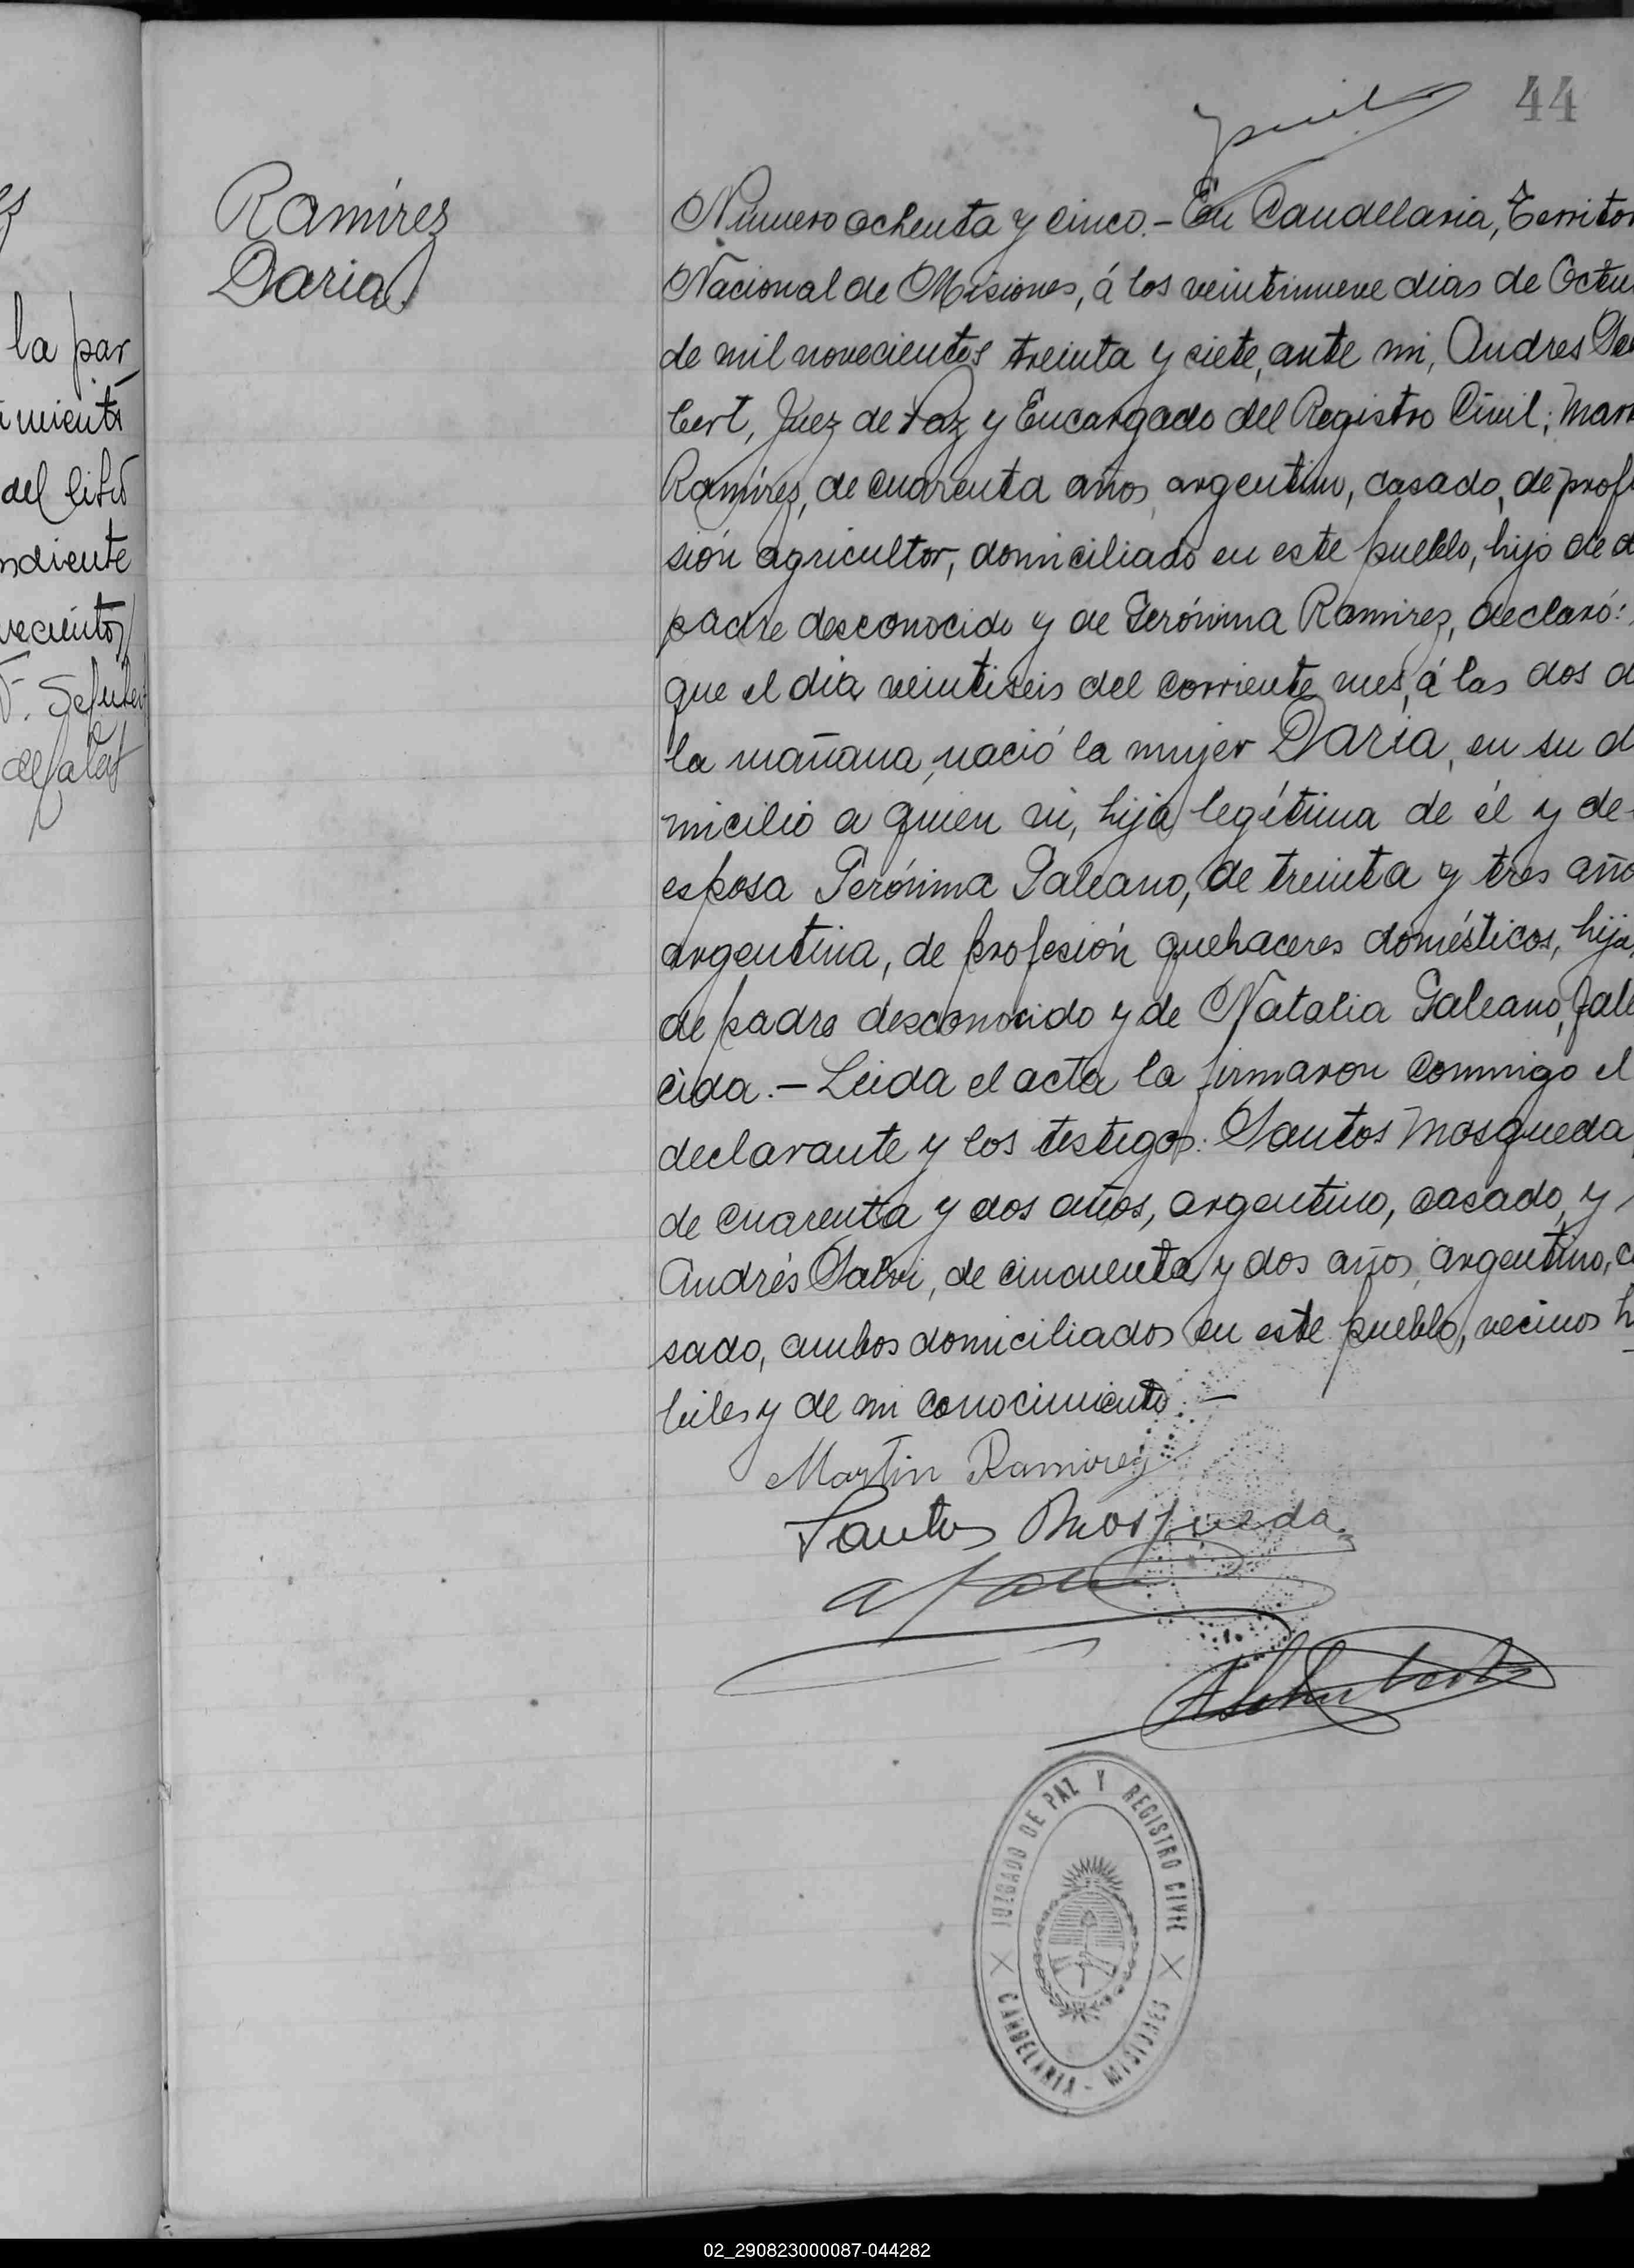 44
Ramírez
Daria
Número ochenta y cinco.- En Candelaria, Territor
Nacional de Misiones, á los veintinueve dias de Octu
de mil novecientos treinta y siete, ante mi, Andres
bert, Juez de Paz y Encargado del Registro Civil; Mar
Ramírez, de cuarenta años, argentino, casado, de profe
sión agricultor, domiciliado en este pueblo, hijo de d
padre desconocido y de Gerónima Ramirez, declaró:
que el día veintiseis del corriente mes, á las dos d
la mañana, nació la mujer Daria, en su d
micilio a quien vi, hija legítima de él y de
esposa Gerónima Galeano, de treinta y tres año
argentina, de profesión quehaceres domésticos, hija,
de padre desconocido y de Natalia Galeano, falle
cida.- Leida el acta la firmaron conmigo el
declarante y los testigos: Santos Mosqueda,
de cuarenta y dos años, argentino, casado, y
Andrés Salvi, de cincuenta y dos años, argentino, c
sado, ambos domiciliados en este pueblo, vecinos h
biles y de mi conocimiento.-
Martin Ramirez
Santos Mosqueda
ASchubert
JUZGADO DE PAZ Y REGISTRO CIVIL
CANDELARIA - MISIONES
la par
miento
del libro
ndiente
vecientos
02_290823000087-044282